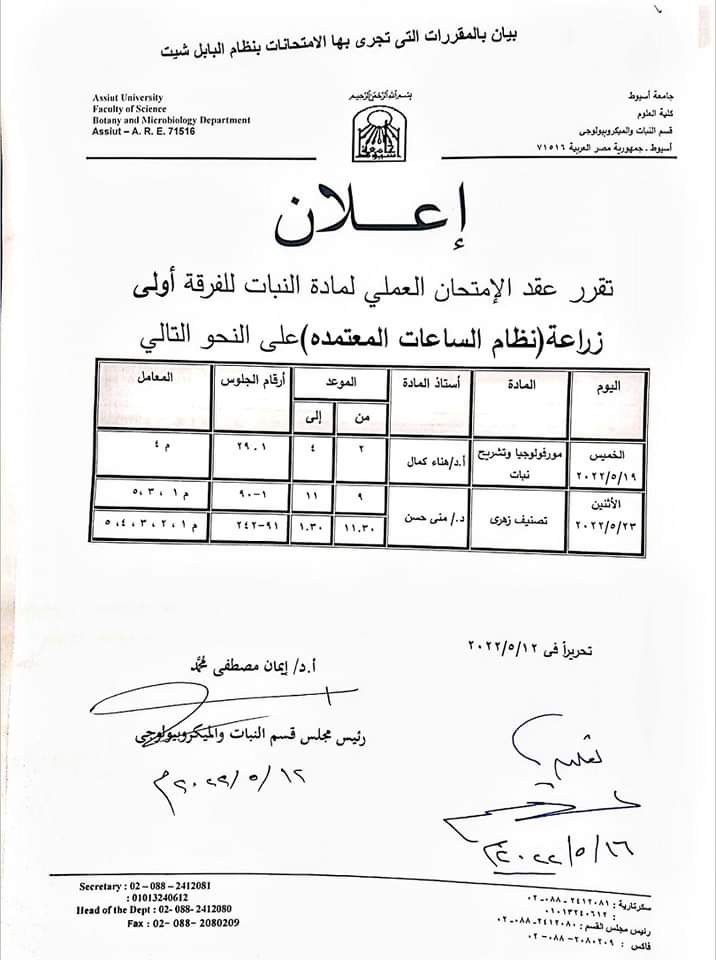 بيان بالمقررات التى تجرى بها الامتحانات بنظام البابل شيت
Assiut University
Faculty of Science
Botany and Microbiology Department
Assiut – A. R. E. 71516
بسم الله الرحمن الرحيم
جامعة أسيوط
جامعة أسيوط
كلية العلوم
قسم النبات والميكروبيولوجى
أسيوط ـ جمهورية مصر العربية ٧١٥١٦
إعـــلان
تقرر عقد الإمتحان العملي لمادة النبات للفرقة أولى
زراعة(نظام الساعات المعتمده)على النحو التالي
اليوم المادة أستاذ المادة الموعد أرقام الجلوس المعامل
من إلى
الخميس ٢٠٢٢/٥/١٩ مورفولوجيا وتشريح نبات أ.د/هناء كمال ٢ ٤ ٢٩.١ م ٤
الأثنين ٢٠٢٢/٥/٢٣ تصنيف زهرى د./ منى حسن ٩ ١١ ٩٠-١ م ١ ،٣ ،٥
١١.٣٠ ١.٣٠ ٢٤٢-٩١ م ١ ،٢ ،٣ ،٤ ،٥
تحريراً فى ٢٠٢٢/٥/١٢
أ.د/ إيمان مصطفى محمد
رئيس مجلس قسم النبات والميكروبيولوجى
٢٠٢٢/٥/١٢م
٢٠٢٢/٥/١٦م
Secretary : 02 – 088 – 2412081
: 01013240612
Head of the Dept : 02- 088- 2412080
Fax : 02- 088- 2080209
سكرتارية : ٢٤١٢٠٨١ ـ ٠٨٨ ـ ٠٢
: ٠١٠١٣٢٤٠٦١٢
رئيس مجلس القسم : ٢٤١٢٠٨٠ ـ ٠٨٨ ـ ٠٢
فاكس : ٢٠٨٠٢٠٩ – ٠٨٨ – ٠٢